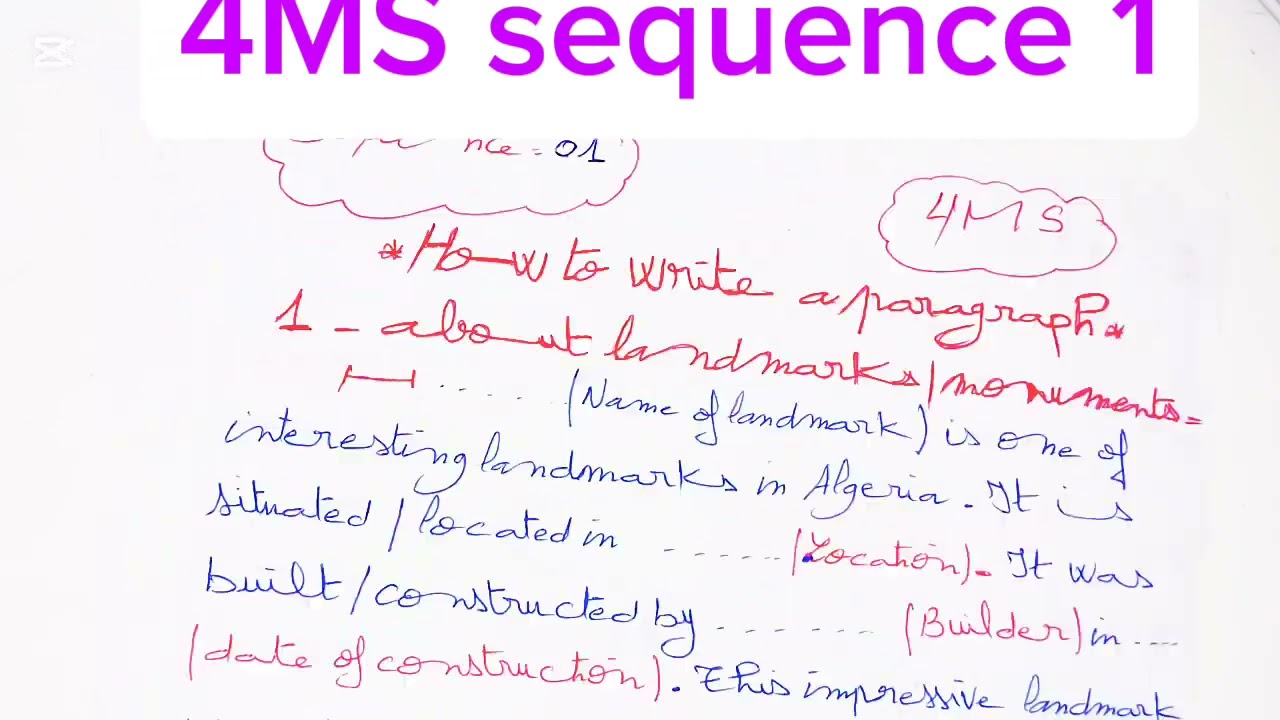 4MS sequence 1
nce = 01
4MS
* How to write a paragraph *
1 - about landmarks / monuments =
..... (Name of landmark) is one of
interesting landmarks in Algeria. It is
situated / located in ...... (Location). It was
built / constructed by ....... (Builder) in ....
(date of construction). This impressive landmark